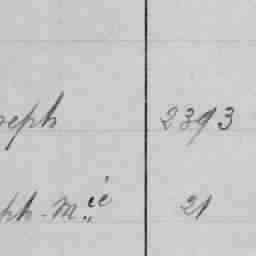 seph 2393
ph-Mie 21